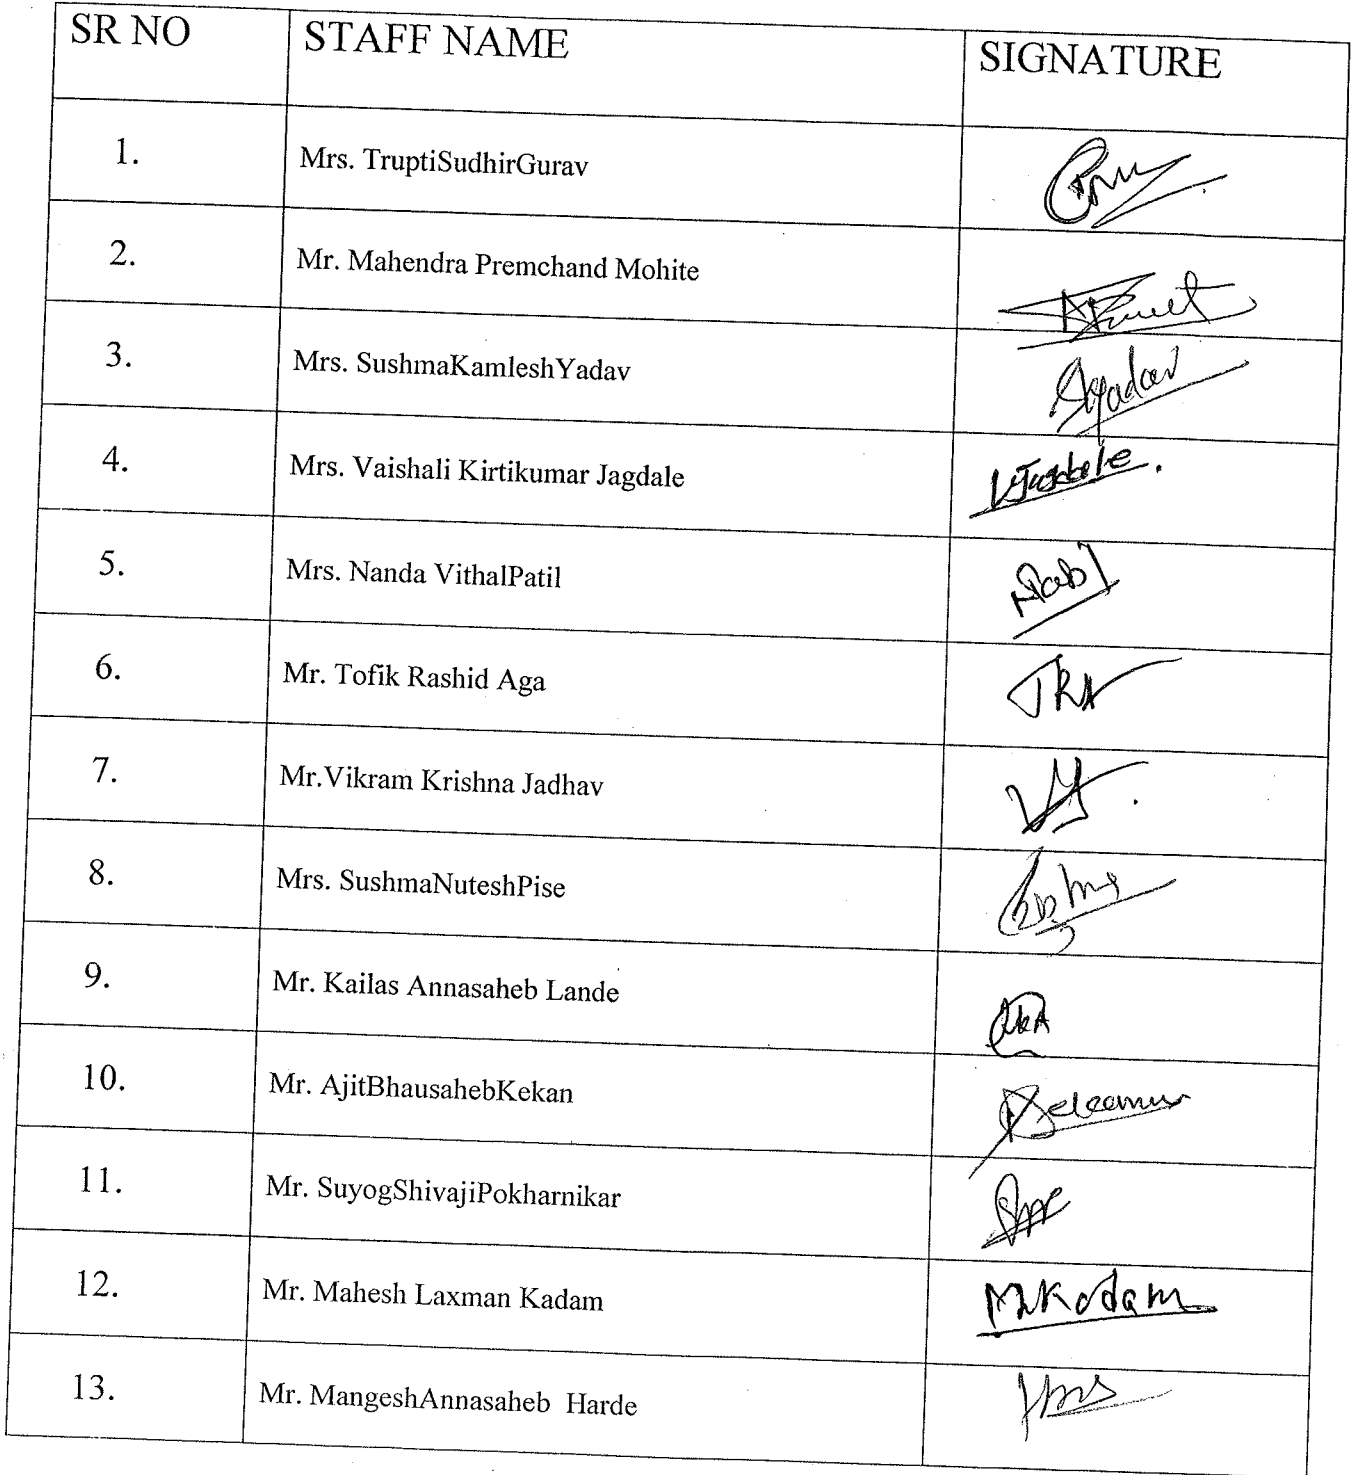 SR NO STAFF NAME SIGNATURE
1. Mrs. TruptiSudhirGurav
2. Mr. Mahendra Premchand Mohite
3. Mrs. SushmaKamleshYadav Syadav
4. Mrs. Vaishali Kirtikumar Jagdale VJagdale.
5. Mrs. Nanda VithalPatil
6. Mr. Tofik Rashid Aga TRA
7. Mr.Vikram Krishna Jadhav
8. Mrs. SushmaNuteshPise
9. Mr. Kailas Annasaheb Lande
10. Mr. AjitBhausahebKekan
11. Mr. SuyogShivajiPokharnikar
12. Mr. Mahesh Laxman Kadam MLKadam
13. Mr. MangeshAnnasaheb Harde